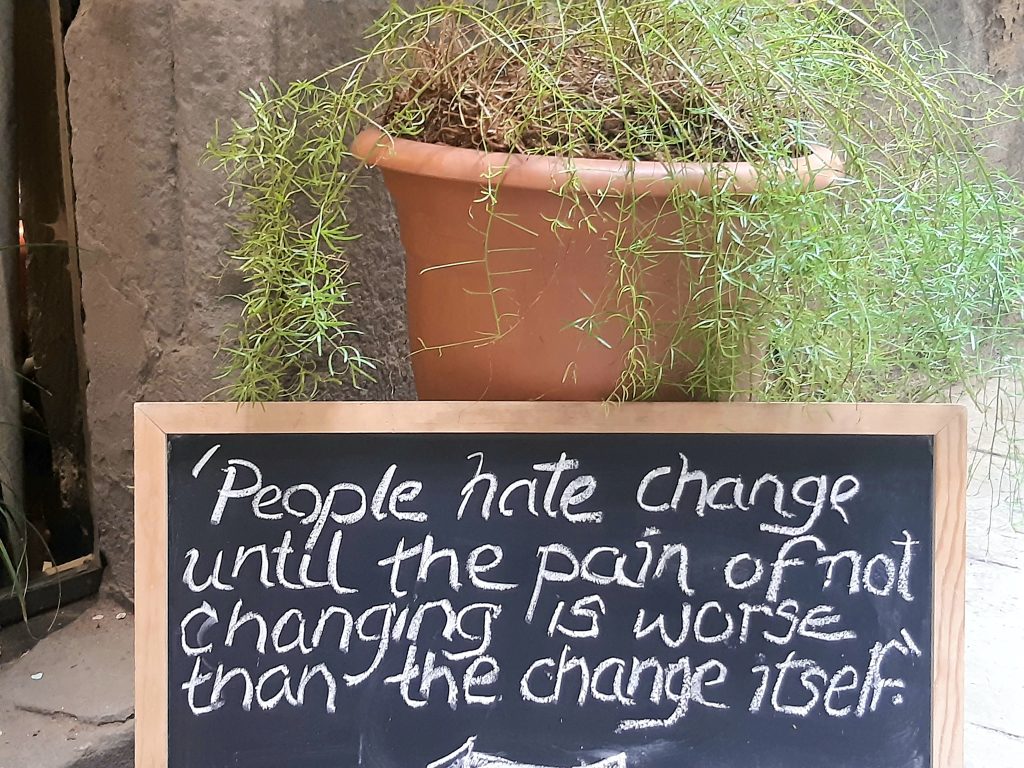 'People hate change
until the pain of not
changing is worse
than the change itself.'